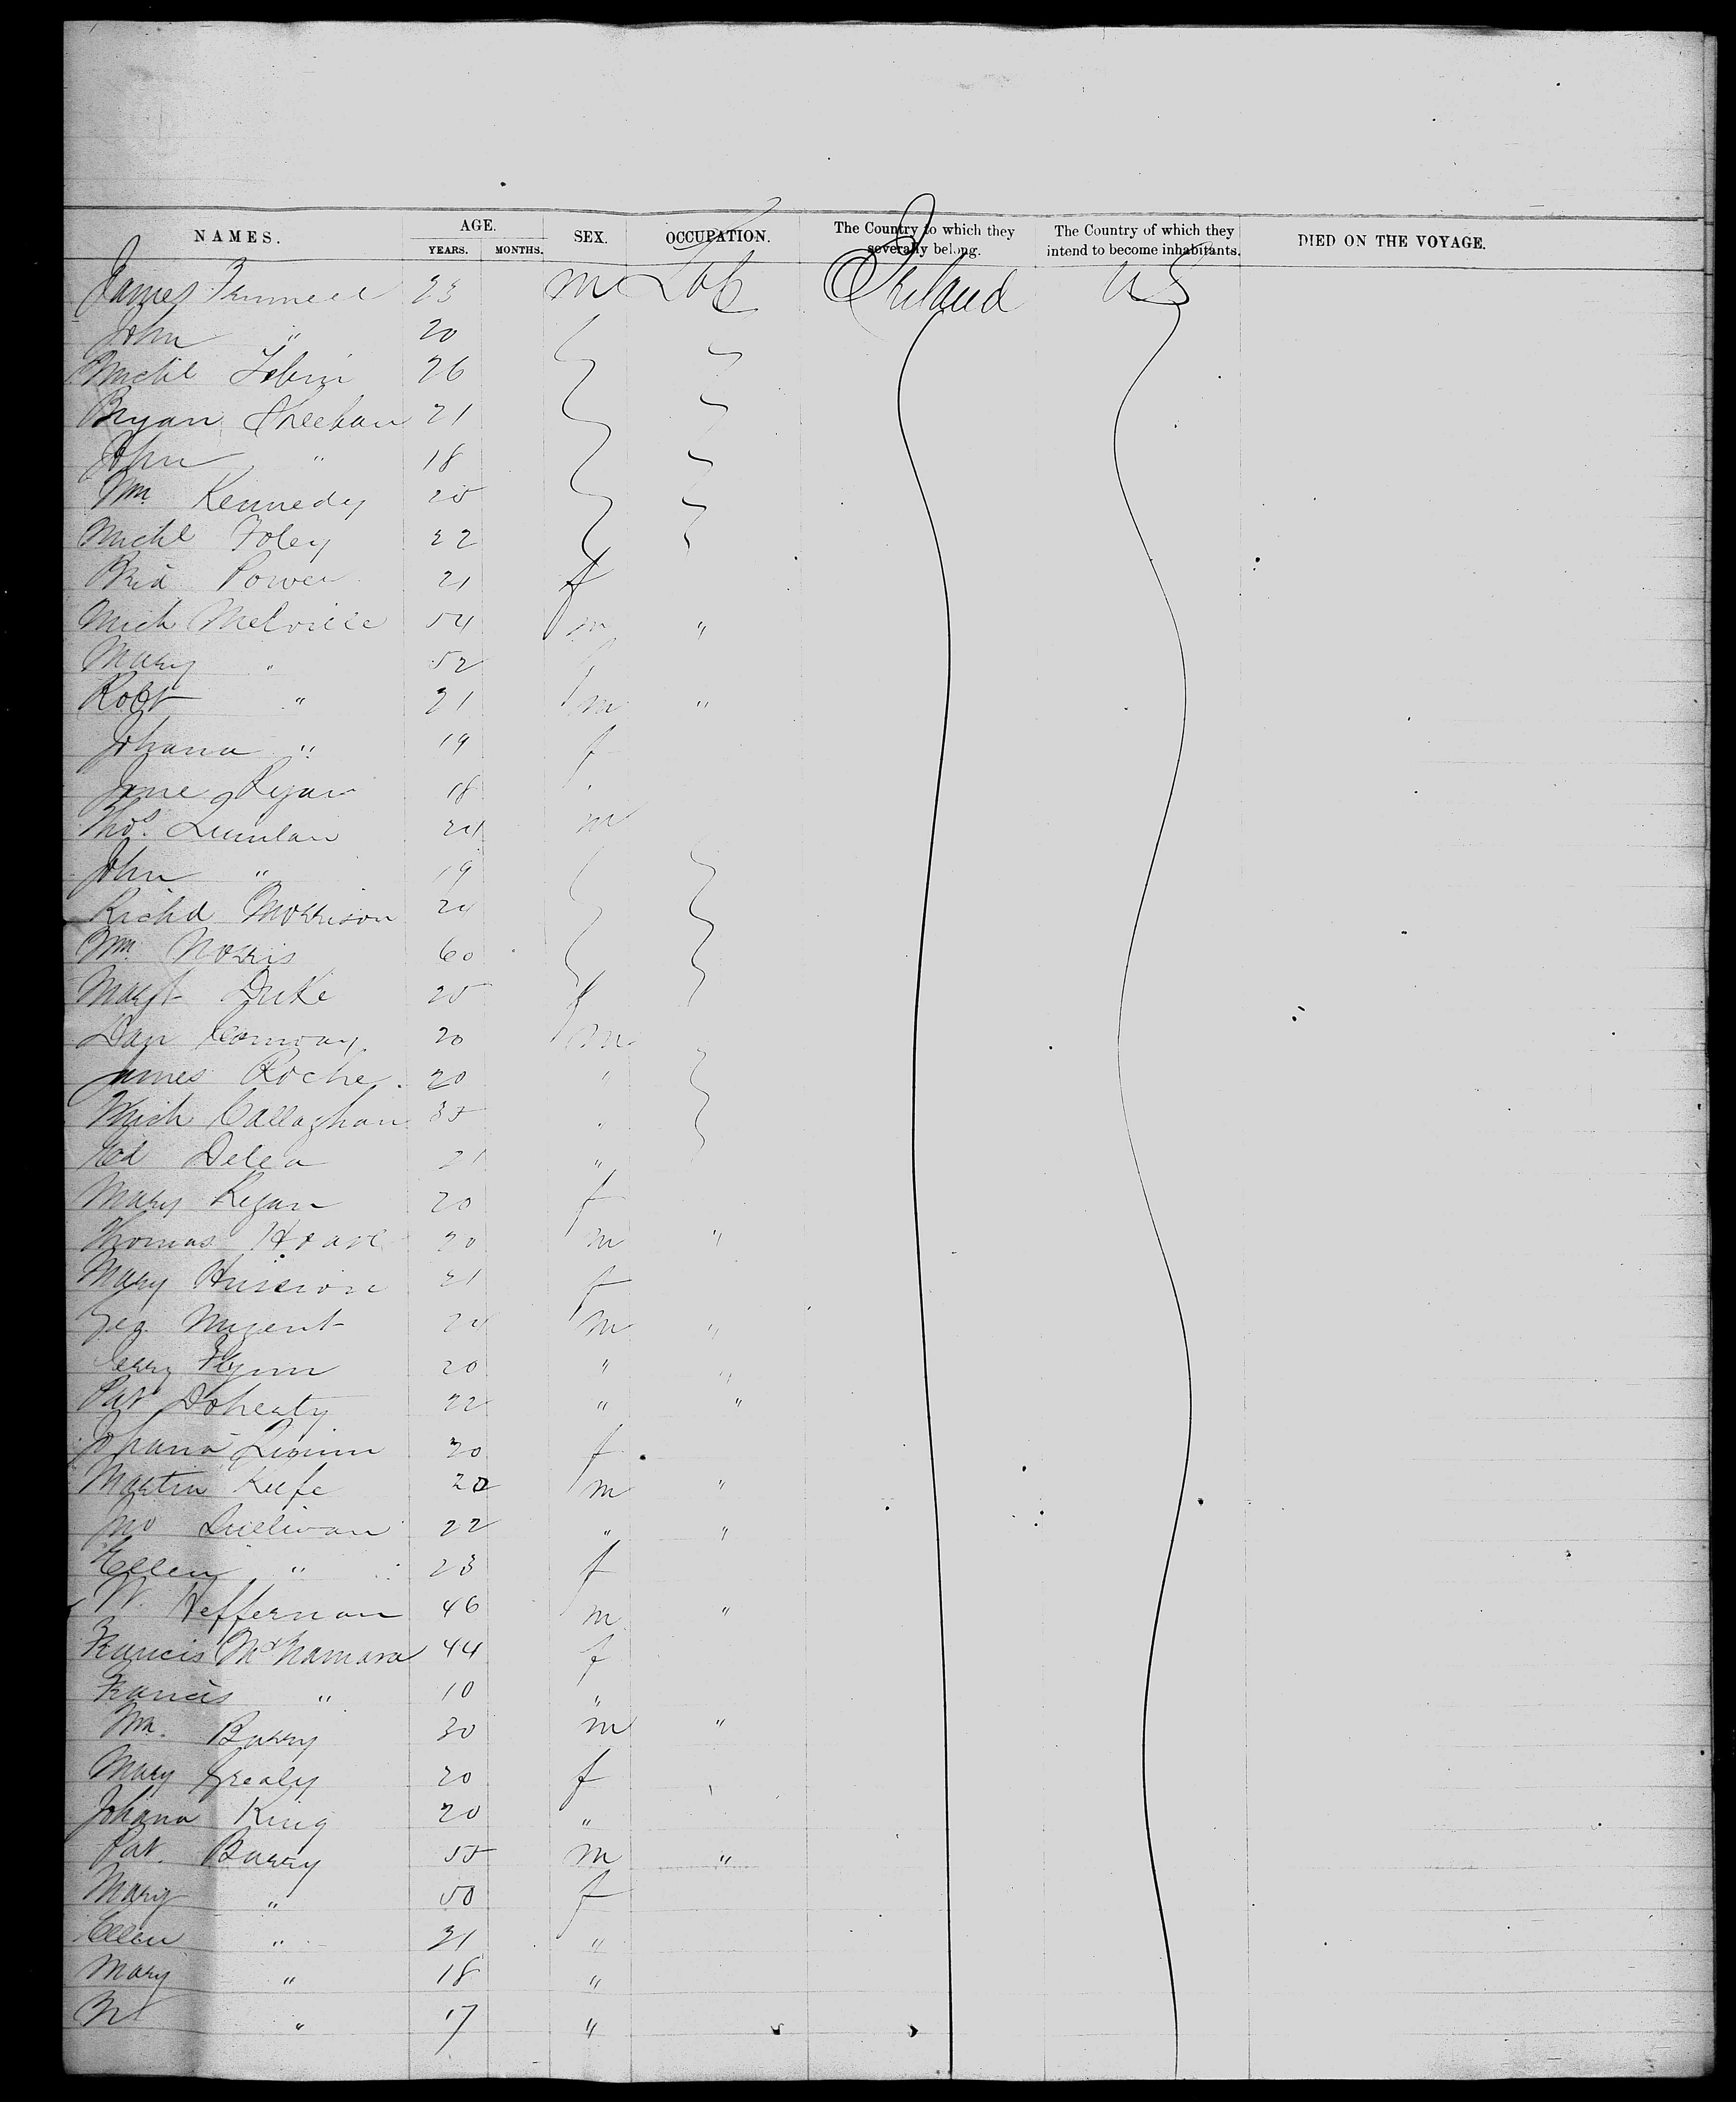 NAMES. AGE. SEX. OCCUPATION. The Country to which they severally belong. The Country of which they intend to become inhabitants. DIED ON THE VOYAGE.
YEARS. MONTHS.
James 23 m Lab Ireland US
John " 20
Michl Tobin 26
Bryan Sheehan 21
John " 18
Wm. Kennedy 25
Michl Foley 22
Brid Power 21 f
Mich Melville 54 m "
Mary " 52
Robt " 21 m "
Johana " 19 f
Jane Ryan 18
Thos. Quinlan 24 m
John " 19
Richd Morrison 24
Wm. Norris 60
Margt Duke 25 f
Dan Conway 20 m
James Roche 20 "
Mich Callaghan 35 "
Ed Delea 21 "
Mary Regan 20 f
Thomas 20 m "
Mary 21 f
Nugent 24 m "
Jerry Flynn 20 " "
Pat Doherty 22 " "
Johana Quinn 20 f
Martin Keefe 20 m "
Jno Sullivan 22 " "
Ellen " 23 f
W. Heffernan 46 m "
Francis McNamara 44 f
Francis " 10 "
Wm. Barry 30 m "
Mary Grealy 20 f
Johana King 20 "
Pat. Barry 55 m "
Mary " 50 f
Ellen " 21 "
Mary " 18 "
" 17 "